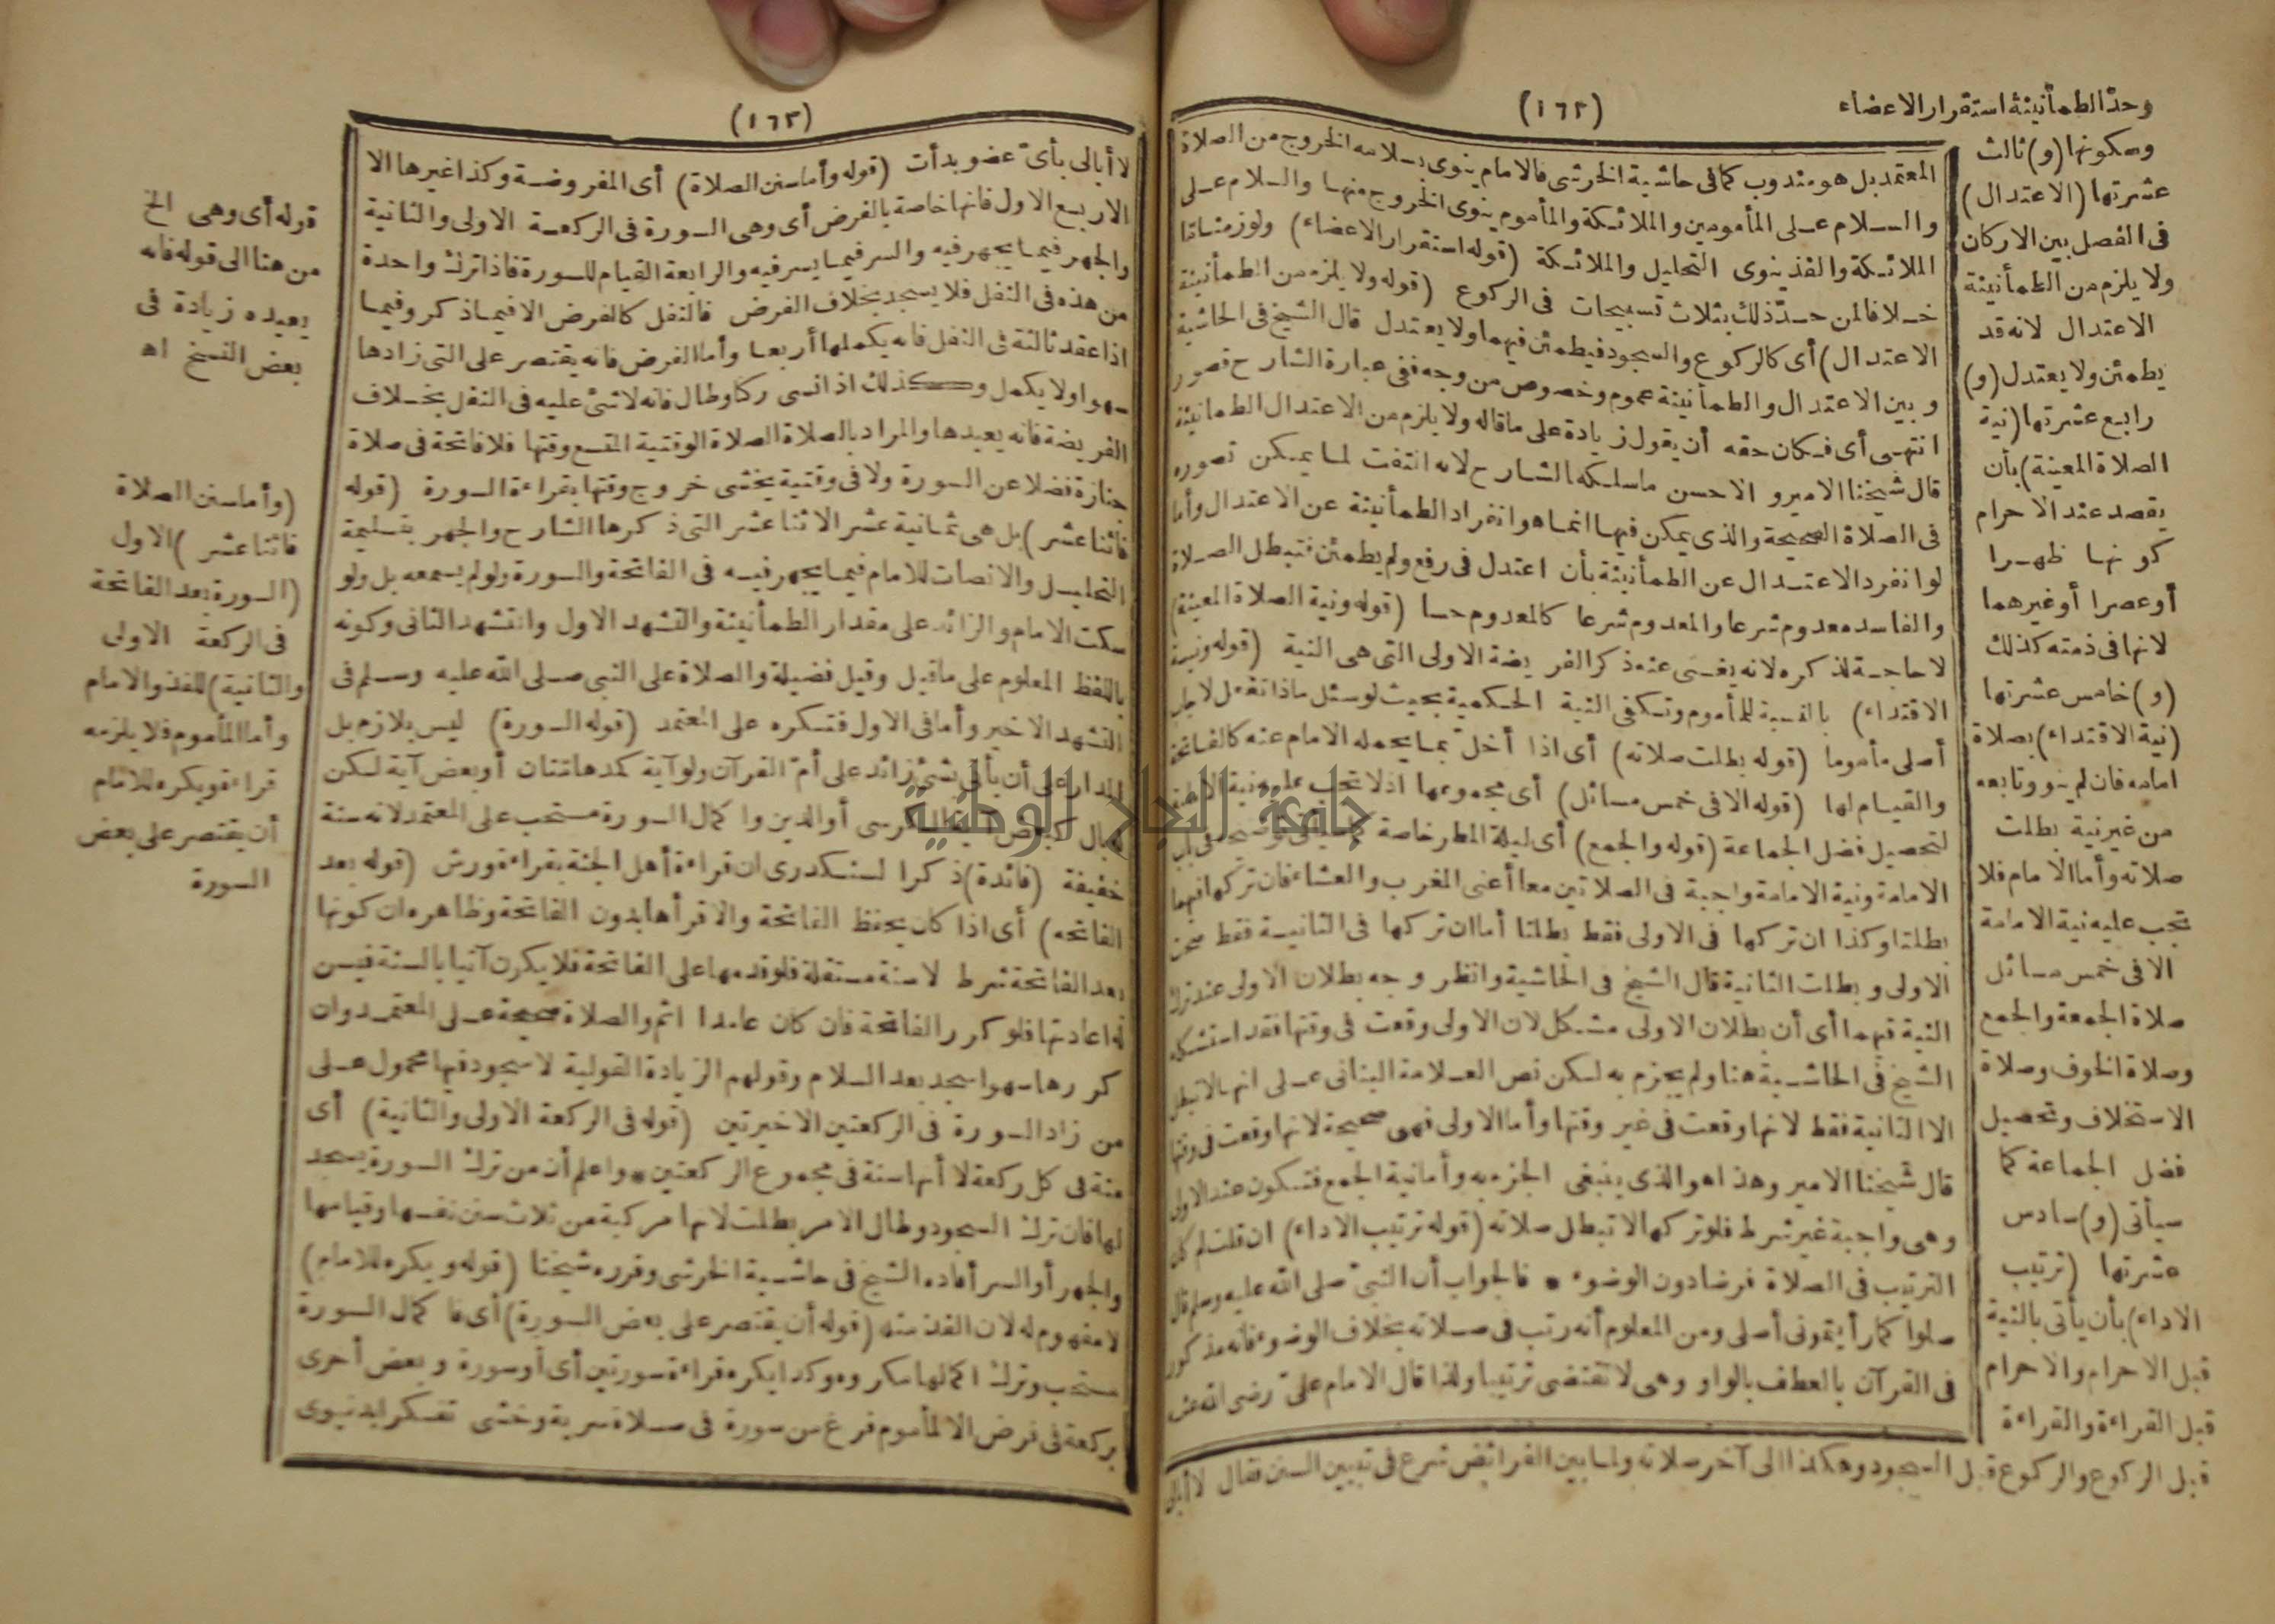 (١٦٢)
وحدّ الطمأنينة استقرار الاعضاء
وسكونها (و) ثالث
عشرتها (الاعتدال)
فى الفصل بين الاركان
ولا يلزم من الطمأنينة
الاعتدال لانه قد
يطمئن ولا يعتدل (و)
رابع عشرتها (نية
الصلاة المعينة) بأن
يقصد عند الاحرام
كونها ظهرا
أو عصرا أو غيرهما
لانها فى ذمته كذلك
(و) خامس عشرتها
(نية الاقتداء) بصلاة
امامه فان لم ينو وتابعه
من غير نية بطلت
صلاته وأما الامام فلا
تجب عليه نية الامامة
الا فى خمس مسائل
صلاة الجمعة والجمع
وصلاة الخوف وصلاة
الاستخلاف وتحصيل
فضل الجماعة كما
سيأتى (و) سادس
عشرتها (ترتيب
الاداء) بأن يأتى بالنية
قبل الاحرام والاحرام
قبل القراءة والقراءة
قبل الركوع والركوع قبل السجود وهكذا الى آخر صلاته ولما بين الفرائض شرع فى تبيين السنن فقال
المعتمد بل هو مندوب كما فى حاشية الخرشى فالامام ينوى بسلامه الخروج من الصلاة
والسلام على المأمومين والملائكة والمأموم ينوى الخروج منها والسلام على
الملائكة والفذ ينوى التحليل والملائكة (قوله استقرار الاعضاء) ولو زمنا ما
خلافا لمن حدّ ذلك بثلاث تسبيحات فى الركوع (قوله ولا يلزم من الطمأنينة
الاعتدال) أى كالركوع والسجود فيطمئن فيهما ولا يعتدل قال الشيخ فى الحاشية
وبين الاعتدال والطمأنينة عموم وخصوص من وجه ففى عبارة الشارح قصور
انتهى أى فكان حقه أن يقول زيادة على ما قاله ولا يلزم من الاعتدال الطمأنينة
قال شيخنا الامير والاحسن ما سلكه الشارح لانه التفت لما يمكن تصوره
فى الصلاة الصحيحة والذى يمكن فيها انما هو انفراد الطمأنينة عن الاعتدال وأما
لو انفرد الاعتدال عن الطمأنينة بأن اعتدل فى رفع ولم يطمئن فتبطل الصلاة
والفاسد معدوم شرعا والمعدوم شرعا كالمعدوم حسا (قوله ونية الصلاة المعينة)
لا حاجة لذكره لانه يغنى عنه ذكر الفريضة الاولى التى هى النية (قوله ونية
الاقتداء) بالنسبة للمأموم وتكفى النية الحكمية بحيث لو سئل ماذا تفعل لاجاب
أصلى مأموما (قوله بطلت صلاته) أى اذا أخلّ بما يحمله الامام عنه كالفاتحة
والقيام لها (قوله الا فى خمس مسائل) أى مجموعها اذ لا تجب عليه نية الامامة
لتحصيل فضل الجماعة (قوله والجمع) أى ليلة المطر خاصة
الامامة ونية الامامة واجبة فى الصلاتين معا أعنى المغرب والعشاء فان تركها فيهما
بطلتا وكذا ان تركها فى الاولى فقط بطلتا أما ان تركها فى الثانية فقط صحت
الاولى وبطلت الثانية قال الشيخ فى الحاشية وانظر وجه بطلان الاولى عند ترك
النية فيهما أى أن بطلان الاولى مشكل لان الاولى وقعت فى وقتها فقد استشكله
الشيخ فى الحاشية هنا ولم يجزم به لكن نص العلامة البنانى على انها لا تبطل
الا الثانية فقط لانها وقعت فى غير وقتها وأما الاولى فهى صحيحة لانها وقعت فى وقتها
قال شيخنا الامير وهذا هو الذى ينبغى الجزم به وأما نية الجمع فتكون عند الاولى
وهى واجبة غير شرط فلو تركها لا تبطل صلاته (قوله ترتيب الاداء) ان قلت لم كان
الترتيب فى الصلاة فرضا دون الوضوء * فالجواب أن النبىّ صلى الله عليه وسلم قال
صلوا كما رأيتمونى أصلى ومن المعلوم أنه رتب فى صلاته بخلاف الوضوء فانه مذكور
فى القرآن بالعطف بالواو وهى لا تقتضى ترتيبا ولذا قال الامام علىّ رضى الله عنه
لا أبالى
(١٦٣)
لا أبالى بأىّ عضو بدأت (قوله وأما سنن الصلاة) أى المفروضة وكذا غيرها الا
الاربع الاول فانها خاصة بالفرض أى وهى السورة فى الركعة الاولى والثانية
والجهر فيما يجهر فيه والسر فيما يسر فيه والرابعة القيام للسورة فاذا ترك واحدة
من هذه فى النفل فلا يسجد بخلاف الفرض فالنفل كالفرض الا فيما ذكر وفيما
اذا عقد ثالثة فى النفل فانه يكملها أربعا وأما الفرض فانه يقتصر على التى زادها
سهوا ولا يكمل وكذلك اذا نسى ركنا وطال فانه لا شئ عليه فى النفل بخلاف
الفريضة فانه يعيدها والمراد بالصلاة الصلاة الوقتية المتسع وقتها فلا فاتحة فى صلاة
جنازة فضلا عن السورة ولا فى وقتية يخشى خروج وقتها بقراءة السورة (قوله
فاثنا عشر) بل هى ثمانية عشر الاثنا عشر التى ذكرها الشارح والجهر بتسليمة
التحليل والانصات للامام فيما يجهر فيه فى الفاتحة والسورة ولو لم يسمعه بل ولو
سكت الامام والزائد على مقدار الطمأنينة والتشهد الاول والتشهد الثانى وكونه
باللفظ المعلوم على ما قيل وقيل فضيلة والصلاة على النبى صلى الله عليه وسلم فى
التشهد الاخير وأما فى الاول فتكره على المعتمد (قوله السورة) ليس بلازم بل
المدار على أن يأتى بشئ زائد على أمّ القرآن ولو آية كمدهامتان أو بعض آية لكن
له بال كبعض آية الكرسى أو الدين واكمال السورة مستحب على المعتمد لانه سنة
خفيفة (فائدة) ذكر السكندرى ان قراءة أهل الجنة بقراءة ورش (قوله بعد
الفاتحة) أى اذا كان يحفظ الفاتحة والا قرأها بدون الفاتحة وظاهره ان كونها
بعد الفاتحة شرط لا سنة مستقلة فلو قدمها على الفاتحة فلا يكون آتيا بالسنة فيسن
له اعادتها فلو كرر الفاتحة فان كان عامدا اثم والصلاة صحيحة على المعتمد وان
كررها سهوا سجد بعد السلام وقولهم الزيادة القولية لا سجود فيها محمول على
من زاد السورة فى الركعتين الاخيرتين (قوله فى الركعة الاولى والثانية) أى
سنة فى كل ركعة لا أنها سنة فى مجموع الركعتين * واعلم أن من ترك السورة يسجد
لها فان ترك السجود وطال الامر بطلت لانها مركبة من ثلاث سنن نفسها وقيامها
والجهر أو السر أفاده الشيخ فى حاشية الخرشى وقرره شيخنا (قوله ويكره للامام)
لا مفهوم له لان الفذ مثله (قوله أن يقتصر على بعض السورة) أى فاكمال السورة
مستحب وترك اكمالها مكروه وكذا يكره قراءة سورتين أى أو سورة وبعض أخرى
بركعة فى فرض الا لمأموم فرغ من سورة فى صلاة سرية وخشى تفكرا بدنيوى
قوله أى وهى الخ
من هنا الى قوله فانه
يعيده زيادة فى
بعض النسخ اه
(وأما سنن الصلاة
فاثنا عشر) الاول
(السورة بعد الفاتحة
فى الركعة الاولى
والثانية) للفذ والامام
وأما المأموم فلا يلزمه
قراءة ويكره للامام
أن يقتصر على بعض
السورة
جامعة النجاح الوطنية